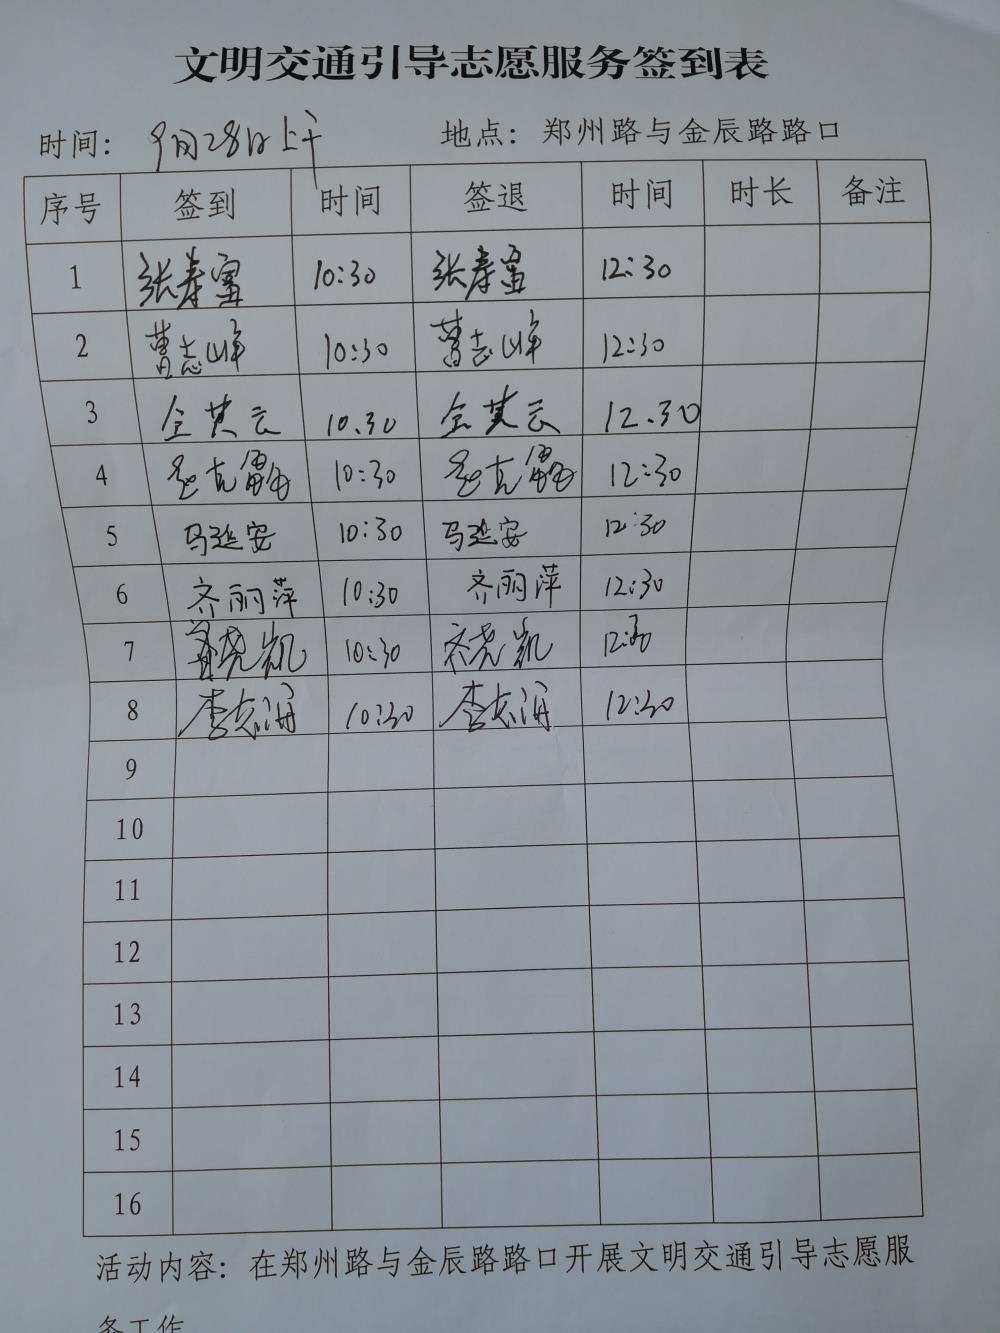 文明交通引导志愿服务签到表
时间: 9月28日上午 地点: 郑州路与金辰路路口
序号 签到 时间 签退 时间 时长 备注
1 张寿富 10:30 张寿富 12:30
2 曹志峰 10:30 曹志峰 12:30
3 全其云 10.30 全其云 12.30
4 克 10:30 克 12:30
5 马延安 10:30 马延安 12:30
6 齐丽萍 10:30 齐丽萍 12:30
7 凯 10:30 凯 12:30
8 李志 10:30 李志 12:30
9
10
11
12
13
14
15
16
活动内容: 在郑州路与金辰路路口开展文明交通引导志愿服
务工作